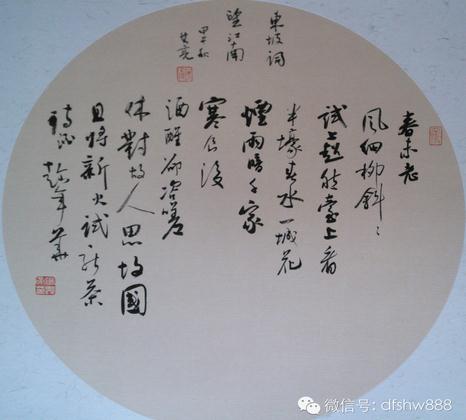 東坡詞
望江南
甲午秋
春未老
風細柳斜〻
試上超然臺上看
半壕春水一城花
煙雨暗千家
寒食後
酒醒卻咨嗟
休對故人思故國
且將新火試新茶
詩酒趁年華
微信号: dfshw888